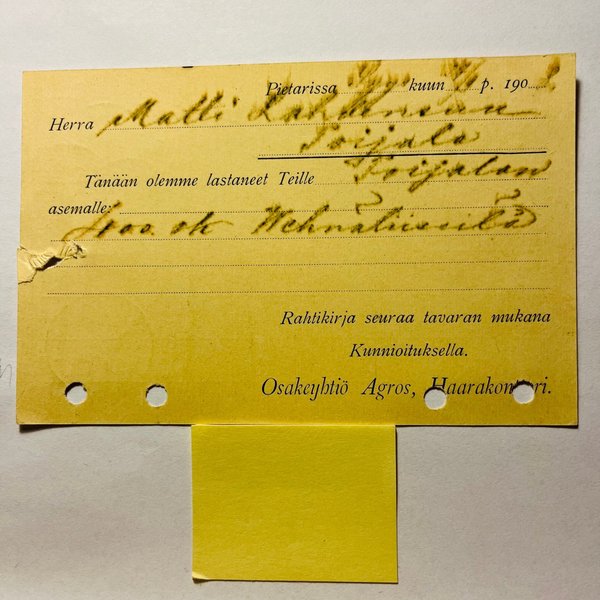 Pietarissa kuun p. 190
Herra Matti
Toijala
Tänään olemme lastaneet Teille Toijalan
asemalle:
Rahtikirja seuraa tavaran mukana
Kunnioituksella.
Osakeyhtiö Agros, Haarakonttori.